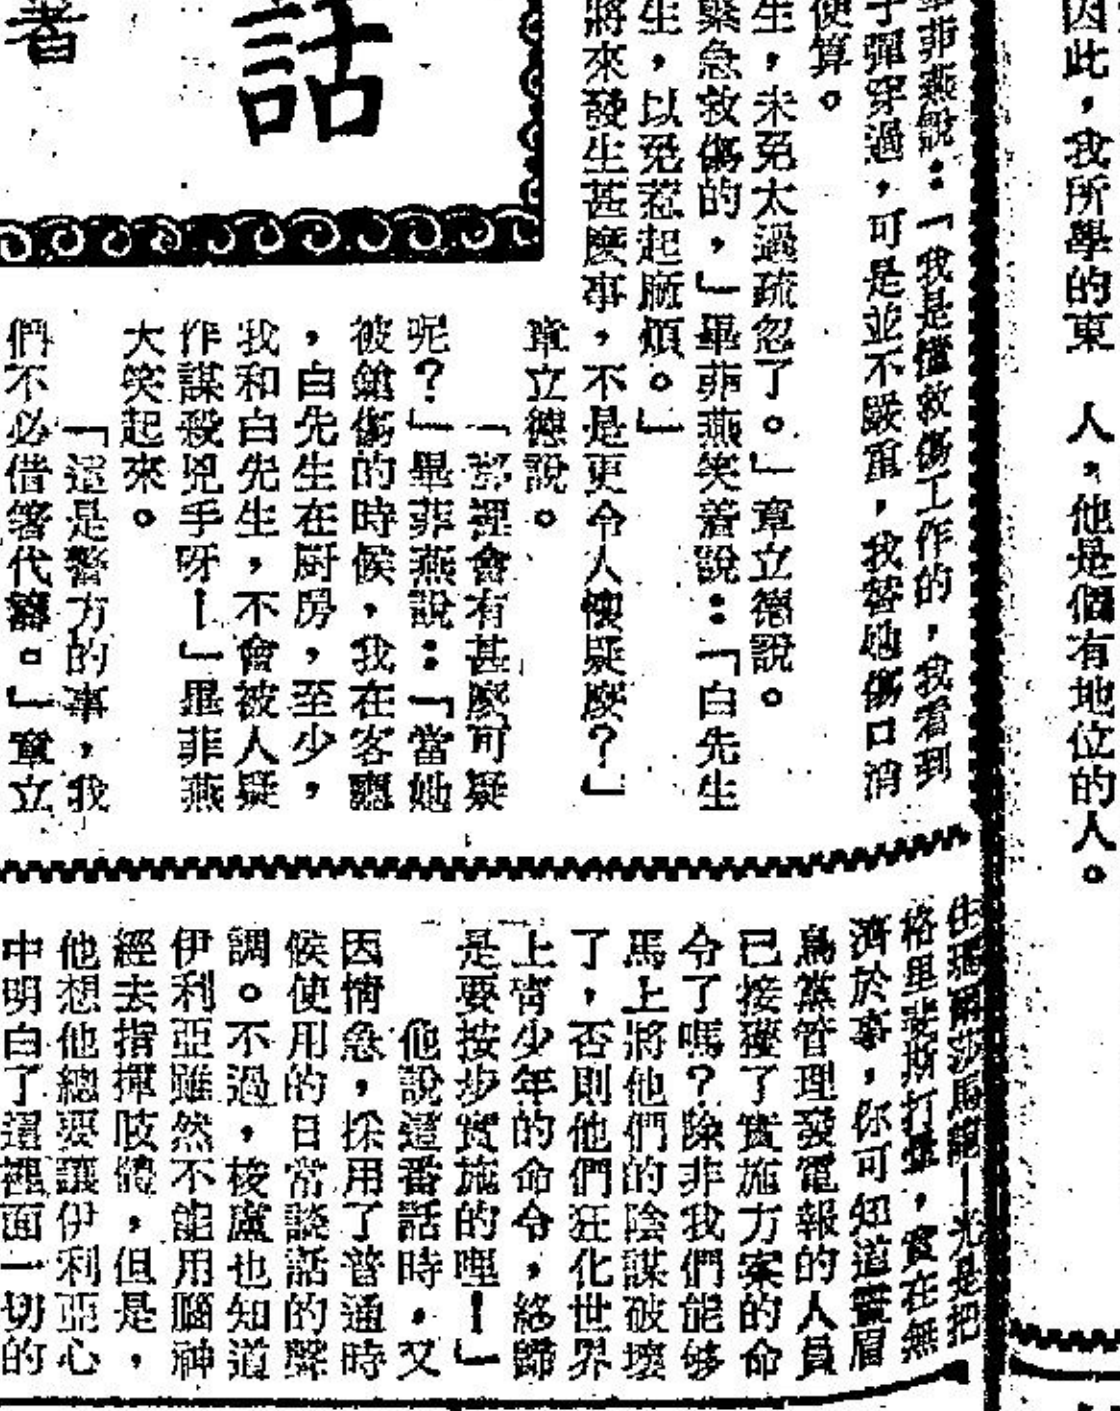 因此，我所學的東 人，他是個有地位的人。
畢菲燕說：「我是懂救傷工作的，我看到
子彈穿過，可是並不嚴重，我替她傷口消
使算。
生，未免太過疏忽了。」章立德說。
緊急救傷的，」畢菲燕笑着說：「白先生
生，以免惹起麻煩。」
將來發生甚麼事，不是更令人懷疑麼？」
章立德說。
「那裡會有甚麼可疑
呢？」畢菲燕說：「當她
被鎗傷的時候，我在客廳
，白先生在厨房，至少，
我和白先生，不會被人疑
作謀殺兇手呀！」畢菲燕
大笑起來。
「這是警方的事，我
們不必借箸代籌。」章立
話
著
住瑪爾莎馬龍！光是把
格里斐斯打擊，實在無
濟於事，你可知道靈眉
鳥黨管理發電報的人員
已接獲了實施方案的命
令了嗎？除非我們能够
馬上將他們的陰謀破壞
了，否則他們狂化世界
上青少年的命令，終歸
是要按步實施的哩！」
他說這番話時，又
因情急，採用了普通時
候使用的日常談話的聲
調。不過，梭盧也知道
伊利亞雖然不能用腦神
經去指揮肢體，但是，
他想他總要讓伊利亞心
中明白了這裡面一切的